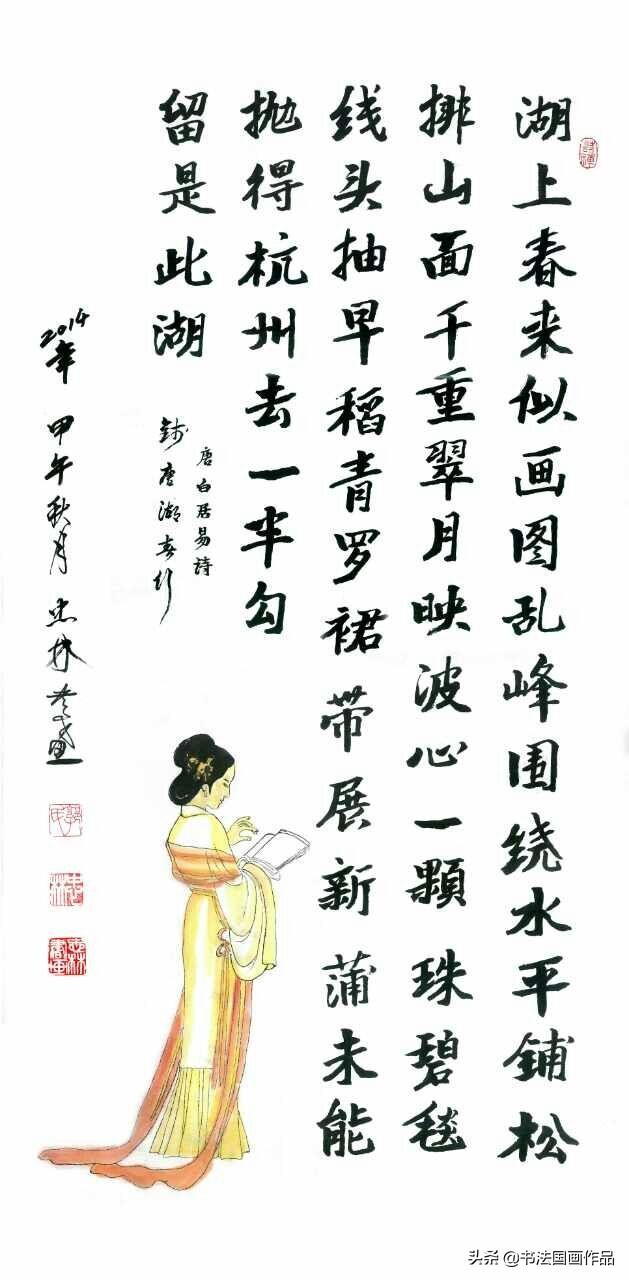 湖上春来似画图乱峰围绕水平铺松
排山面千重翠月映波心一顆珠碧毯
线头抽早稻青罗裙带展新蒲未能
抛得杭州去一半勾
留是此湖
唐白居易詩
錢唐湖春行
2014年 甲午秋月 忠林
头条 @书法国画作品